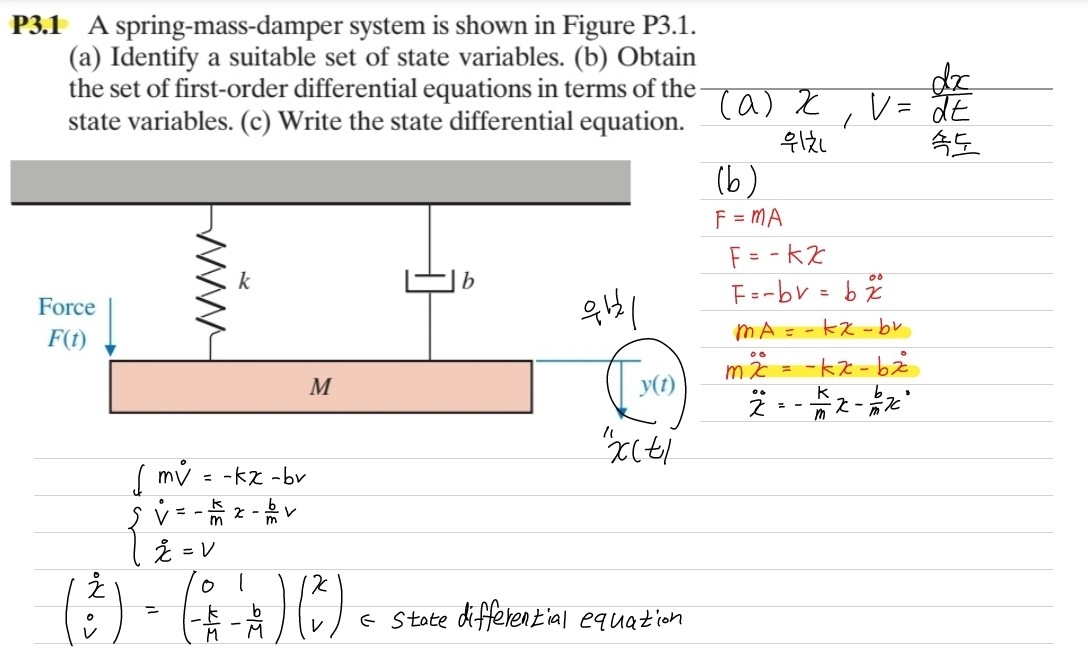 P3.1 A spring-mass-damper system is shown in Figure P3.1.
(a) Identify a suitable set of state variables. (b) Obtain
the set of first-order differential equations in terms of the
state variables. (c) Write the state differential equation.
(a) x , V = dx/dt
위치 속도
(b)
F = mA
F = -kx
F = -bv = bẍ
mA = -kx - bv
mẍ = -kx - bẋ
ẍ = -k/m x - b/m ẋ
k
b
Force
F(t)
M
위치
y(t)
"
x(t)
{ mv̇ = -kx - bv
{ v̇ = -k/m x - b/m v
ẋ = v
(ẋ v̇) = (0 1 -k/M -b/M) (x v) ← state differential equation